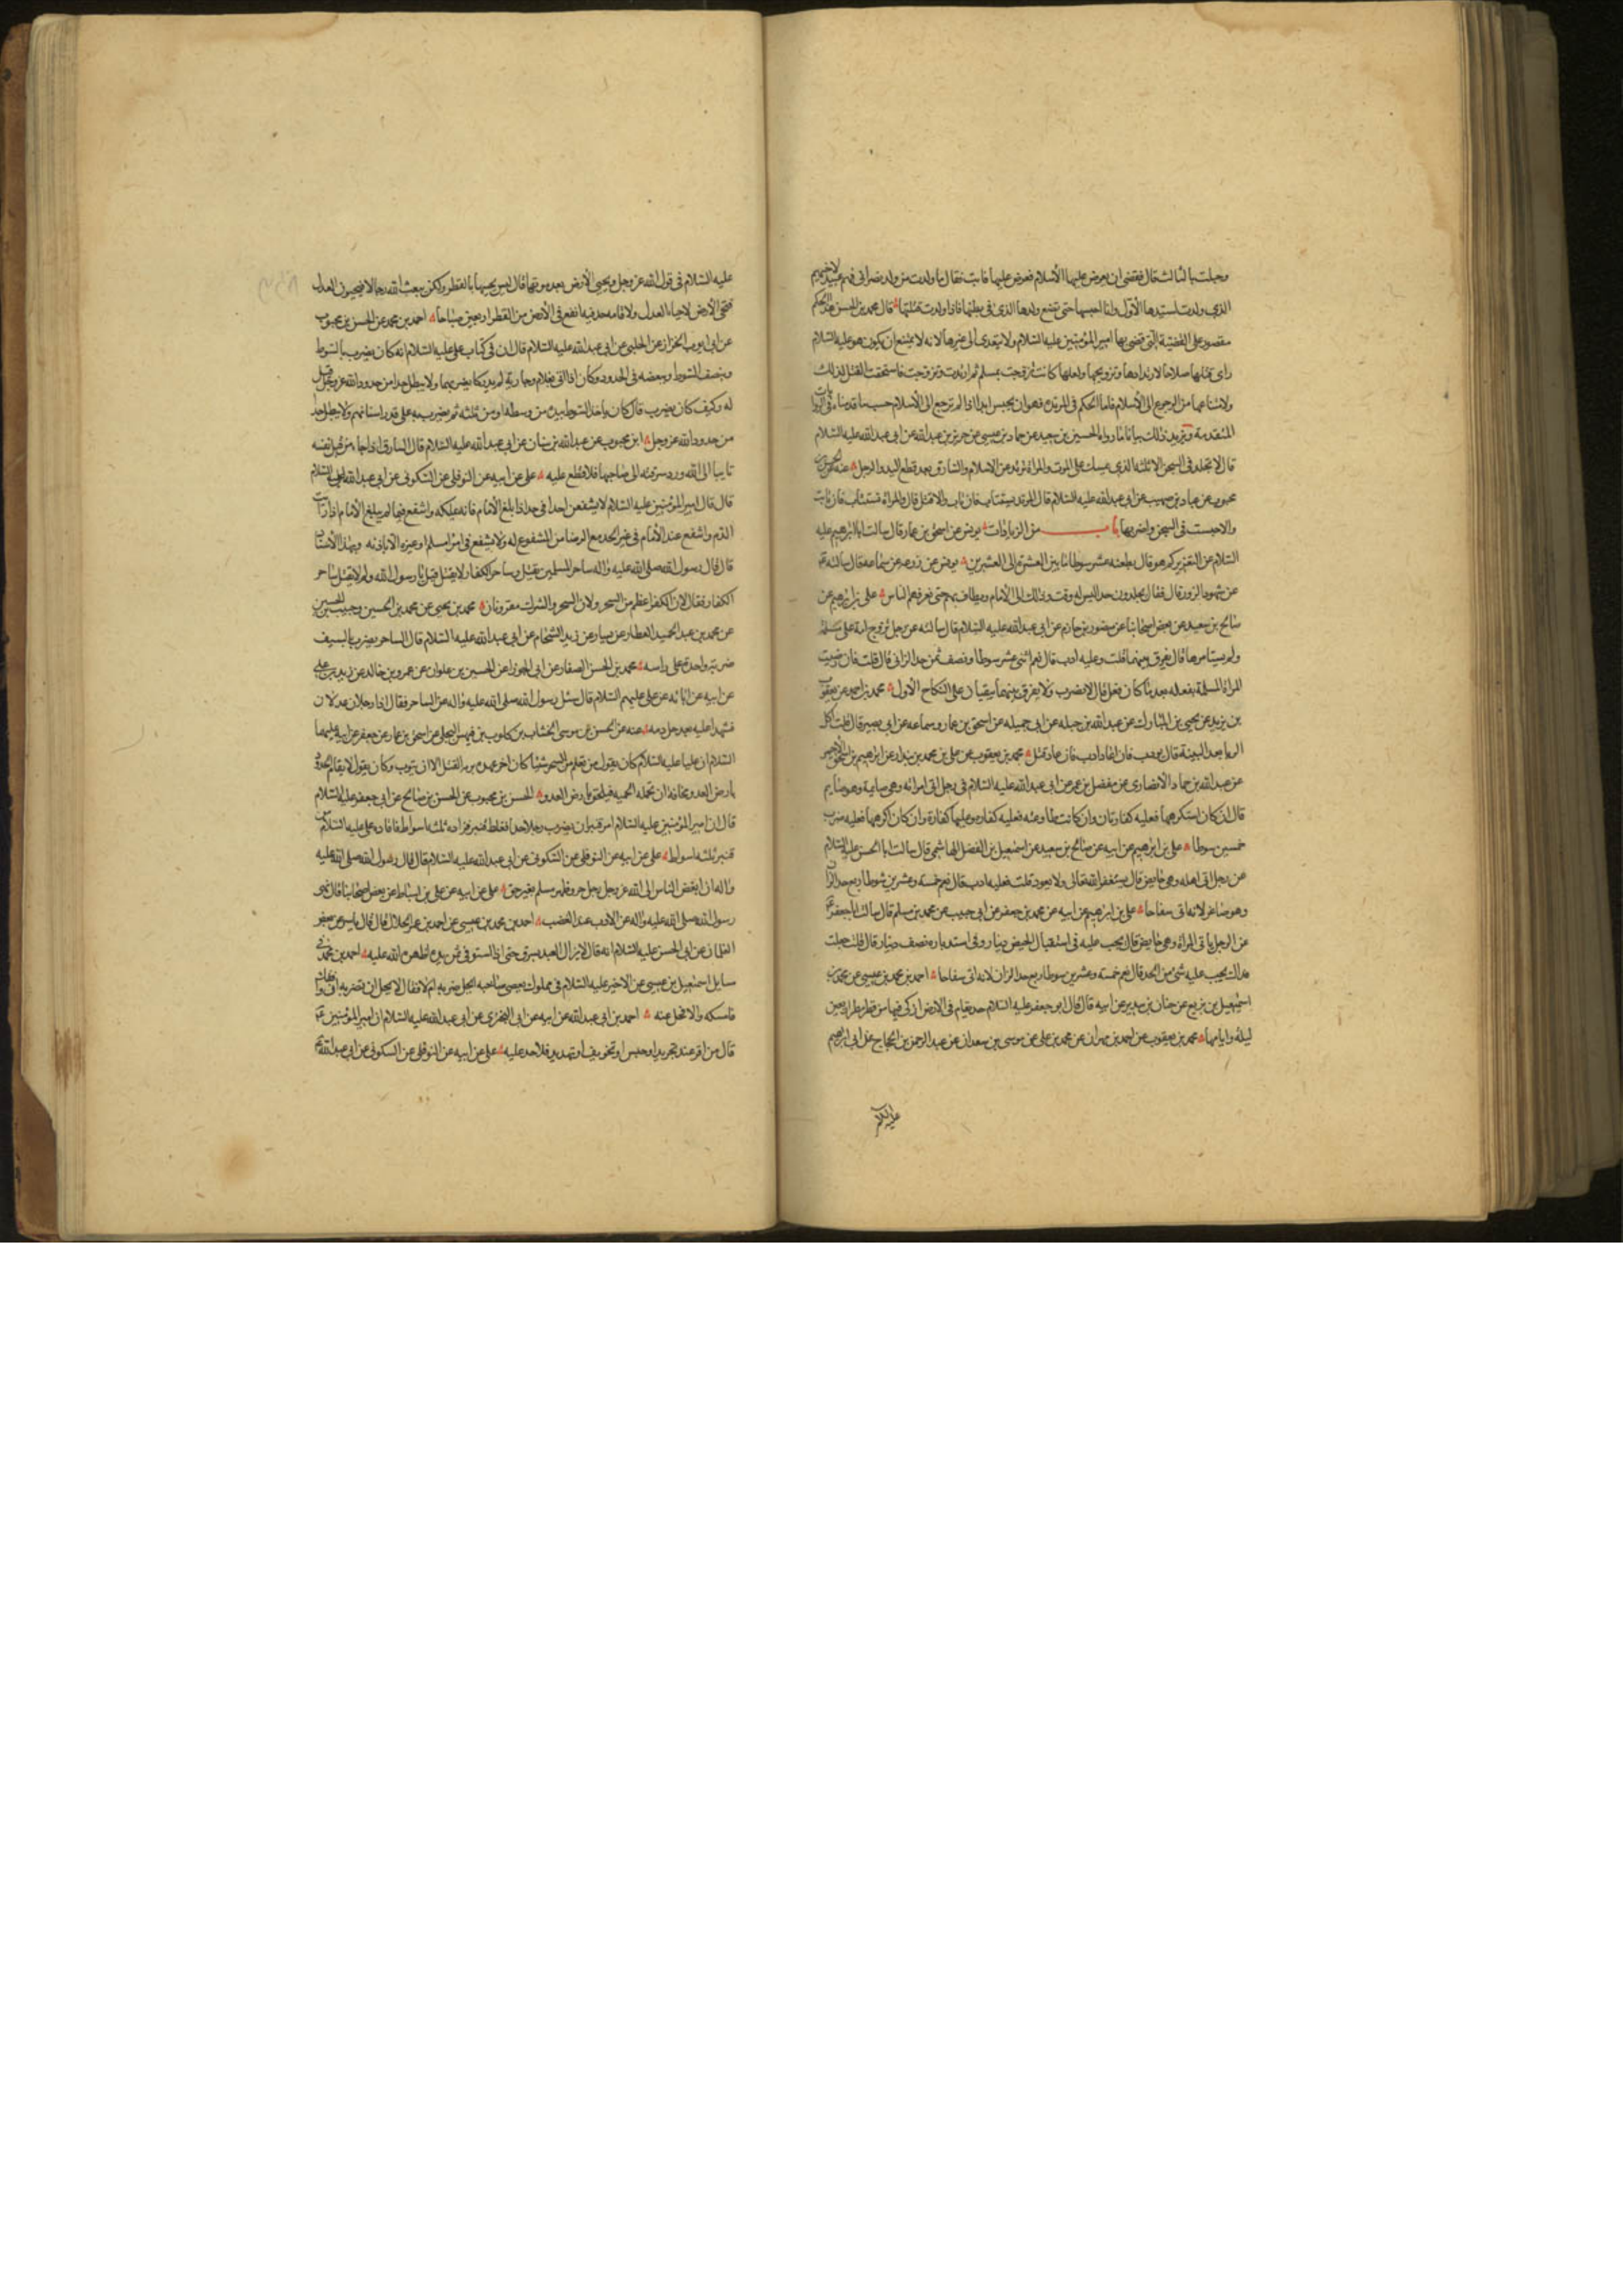 وحبلت بالثالث قال فقضى ان يعرض عليها الاسلام فعرض عليها فابت فقال ما ولدت من ولد نصرانى فهم عبيد لاخيهم
الذى ولدت لسيدها الاول وانا احبسها حتى تضع ولدها الذى فى بطنها فاذا ولدت قتلتها قال محمد بن الحسن هذا الحكم
مقصور على القضية التى قضى بها امير المؤمنين عليه السلام ولا يتعدى الى غيرها لانه لا يمتنع ان يكون هو عليه السلام
راى قتلها صلاحا لارتدادها وتزويجها ولعلها كانت تزوجت بمسلم ثم ارتدت وتزوجت فاستحقت القتل لذلك
ولامتناعها من الرجوع الى الاسلام فاما الحكم فى المرتدة فهو ان يحبس ابدا اذا لم ترجع الى الاسلام حسب ما قدمناه فى الروايات
المتقدمة ويزيد ذلك بيانا ما رواه الحسين بن سعيد عن حماد بن عيسى عن حريز بن عبدالله عن ابى عبدالله عليه السلام
قال لا يخلد فى السجن الا ثلثة الذى يمسك على الموت والمراة ترتد عن الاسلام والسارق بعد قطع اليد والرجل عنه عن الحسن بن
محبوب عن عباد بن صهيب عن ابى عبدالله عليه السلام قال المرتد يستتاب فان تاب والا قتل قال والمراة تستتاب فان تابت
والا حبست فى السجن واضر بها باب من الزيادات يونس عن اسحق بن عمار قال سالت ابا ابرهيم عليه
السلام عن التعزير كم هو قال بضعة عشر سوطا ما بين العشرة الى العشرين يونس عن زرعه عن سماعه قال سالته
عن شهود الزور قال فقال يجلدون حد اليس له وقت وذلك الى الامام ويطاف بهم حتى تعرفهم الناس على بن ابرهيم عن
صالح بن سعيد عن بعض اصحابنا عن منصور بن حازم عن ابى عبدالله عليه السلام قال سالته عن رجل تزوج امة على مسلمة
ولم يستامرها قال يفرق بينهما قلت وعليه ادب قال نعم اثنى عشر سوطا ونصف ثمن حد الزانى قال قلت فان رضيت
المراة المسلمة بفعله بعد ما كان فعل قال لا يضرب ولا يفرق بينهما يبقيان على النكاح الاول محمد بن احمد عن يعقوب
بن يزيد عن يحيى بن المبارك عن عبدالله بن جبله عن ابى جميله عن اسحق بن عمار وسماعه عن ابى بصير قال قلت اكل
الربا بعد البينة قال يودب فان عاد ادب فان عاد قتل محمد بن يعقوب عن على بن محمد بن بندار عن ابراهيم بن اسحق الاحمر
عن عبدالله بن حماد الانصارى عن مفضل بن عمر عن ابى عبدالله عليه السلام فى رجل اتى امراته وهى صايمة وهو صايم
قال ان كان استكرهها فعليه كفارتان وان كانت طاوعته فعليه كفاره وعليها كفارة وان كان اكرهها فعليه ضرب
خمسين سوطا على بن ابرهيم عن ابيه عن صالح بن سعيد عن اسمعيل بن الفضل الهاشمى قال سالت ابا الحسن عليه السلام
عن رجل اتى اهله وهى حايض قال يستغفر الله تعالى ولا يعود قلت فعليه ادب قال نعم خمسة وعشرين سوطا ربع حد الزانى
وهو صاغر لانه اتى سفاحا على بن ابرهيم عن ابيه عن محمد بن جعفر عن ابى حبيب عن محمد بن مسلم قال سالت ابا جعفر
عن الرجل ياتى المراة وهى حايض قال يجب عليه فى استقبال الحيض دينار وفى استدباره نصف دينار قال قلت جعلت
فداك يجب عليه شئ من الحد قال نعم خمسة وعشرين سوطا ربع حد الزانى لانه اتى سفاحا احمد بن محمد بن عيسى عن محمد بن
اسمعيل بن بزيع عن حنان بن سدير عن ابيه قال قال ابو جعفر عليه السلام حد يقام فى الارض ازكى فيها من قطر مطر اربعين
ليلة وايامها محمد بن يعقوب عن احمد بن مهران عن محمد بن على عن موسى بن سعدان عن عبد الرحمن بن الحجاج عن ابى ابرهيم
عليه السلام
عليه السلام فى قول الله عز وجل ويحيى الارض بعد موتها قال ليس يحييها بالقطر ولكن يبعث الله رجالا فيحيون العدل
فتحى الارض لاحياء العدل ولاقامه حد فيه انفع فى الارض من القطر اربعين صباحا احمد بن محمد عن الحسن بن محبوب
عن ابى ايوب الخزاز عن الحلبى عن ابى عبدالله عليه السلام قال ان فى كتاب على عليه السلام انه كان يضرب بالسوط
وبنصف السوط وببعضه فى الحدود وكان اذا اتى بغلام وجارية لم يدركا يضربهما ولا يبطل حدا من حدود الله عز وجل قيل
له وكيف كان يضرب قال كان ياخذ السوط بيده من وسطه او من ثلثه ثم يضرب به على قدر اسنانهم ولا يبطل حدا
من حدود الله عز وجل ابن محبوب عن عبدالله بن سنان عن ابى عبدالله عليه السلام قال السارق اذا جاء من قبل نفسه
تايبا الى الله ورد سرقته الى صاحبها فلا قطع عليه على عن ابيه عن النوفلى عن السكونى عن ابى عبدالله عليه السلام
قال قال امير المؤمنين عليه السلام لا يشفعن احدا فى حد اذا بلغ الامام فانه يملكه واشفع فيما لم يبلغ الامام اذا رايت
الندم واشفع عند الامام فى غير الحد مع الرضا من المشفوع له ولا يشفع فى امرئ مسلم او غيره الا باذنه وبهذا الاسناد
قال قال رسول الله صلى الله عليه واله ساحر المسلمين يقتل وساحر الكفار لا يقتل قيل يا رسول الله ولم لا يقتل ساحر
الكفار فقال لان الكفر اعظم من السحر ولان السحر والشرك مقرونان محمد بن يحيى عن محمد بن الحسين وحبيب بن الحسين
عن محمد بن عبد الحميد العطار عن سيار عن زيد الشحام عن ابى عبدالله عليه السلام قال الساحر يضرب بالسيف
ضربة واحدة على راسه محمد بن الحسن الصفار عن ابى الجوزاء عن الحسين بن علوان عن عمرو بن خالد عن زيد بن على
عن ابيه عن ابائه عن على عليهم السلام قال سئل رسول الله صلى الله عليه واله عن الساحر فقال اذا رجلان عدلان
فشهدا عليه بعد حل دمه عنه عن الحسن بن موسى الخشاب بن كلوب بن فيهس البجلى عن اسحق بن عمار عن جعفر عن ابيه عليهما
السلام ان عليا عليه السلام كان يقول من تعلم من السحر شيئا كان اخر عهده بربه القتل الا ان يتوب وكان يقول لا يقام الحدود
بارض العدو مخافة ان تحمله الحمية فيلحق بارض العدو الحسن بن محبوب عن الحسن بن صالح عن ابى جعفر عليه السلام
قال ان امير المؤمنين عليه السلام امر قنبر ان يضرب رجلا حدا فغلط قنبر فزاده ثلثه اسواط فاقاده على عليه السلام من
قنبر ثلثه اسواط على عن ابيه عن النوفلى عن السكونى عن ابى عبدالله عليه السلام قال قال رسول الله صلى الله عليه
واله ان ابغض الناس الى الله عز وجل رجل جرد ظهر مسلم بغير حق على عن ابيه عن على بن اسباط عن بعض اصحابنا قال نهى
رسول الله صلى الله عليه واله عن الادب عند الغضب احمد بن محمد بن عيسى عن احمد بن عمر الحلال قال قال ياسر عن بعض
الغلمان عن ابى الحسن عليه السلام انه قال لا يزال العبد يسرق حتى اذا استوفى ثمن يده اظهره الله عليه احمد بن محمد فى
مسايل اسمعيل بن عيسى عن الاخير عليه السلام فى مملوك يعصى صاحبه ايحل ضربه ام لا فقال لا يحل ان تضربه ان وافقك
فامسكه والا فخل عنه احمد بن ابى عبدالله عن ابيه عن ابى البخترى عن ابى عبدالله عليه السلام ان امير المؤمنين
قال من اقر عند تجريد او حبس او تخويف او تهديد فلا حد عليه على عن ابيه عن النوفلى عن السكونى عن ابى عبدالله